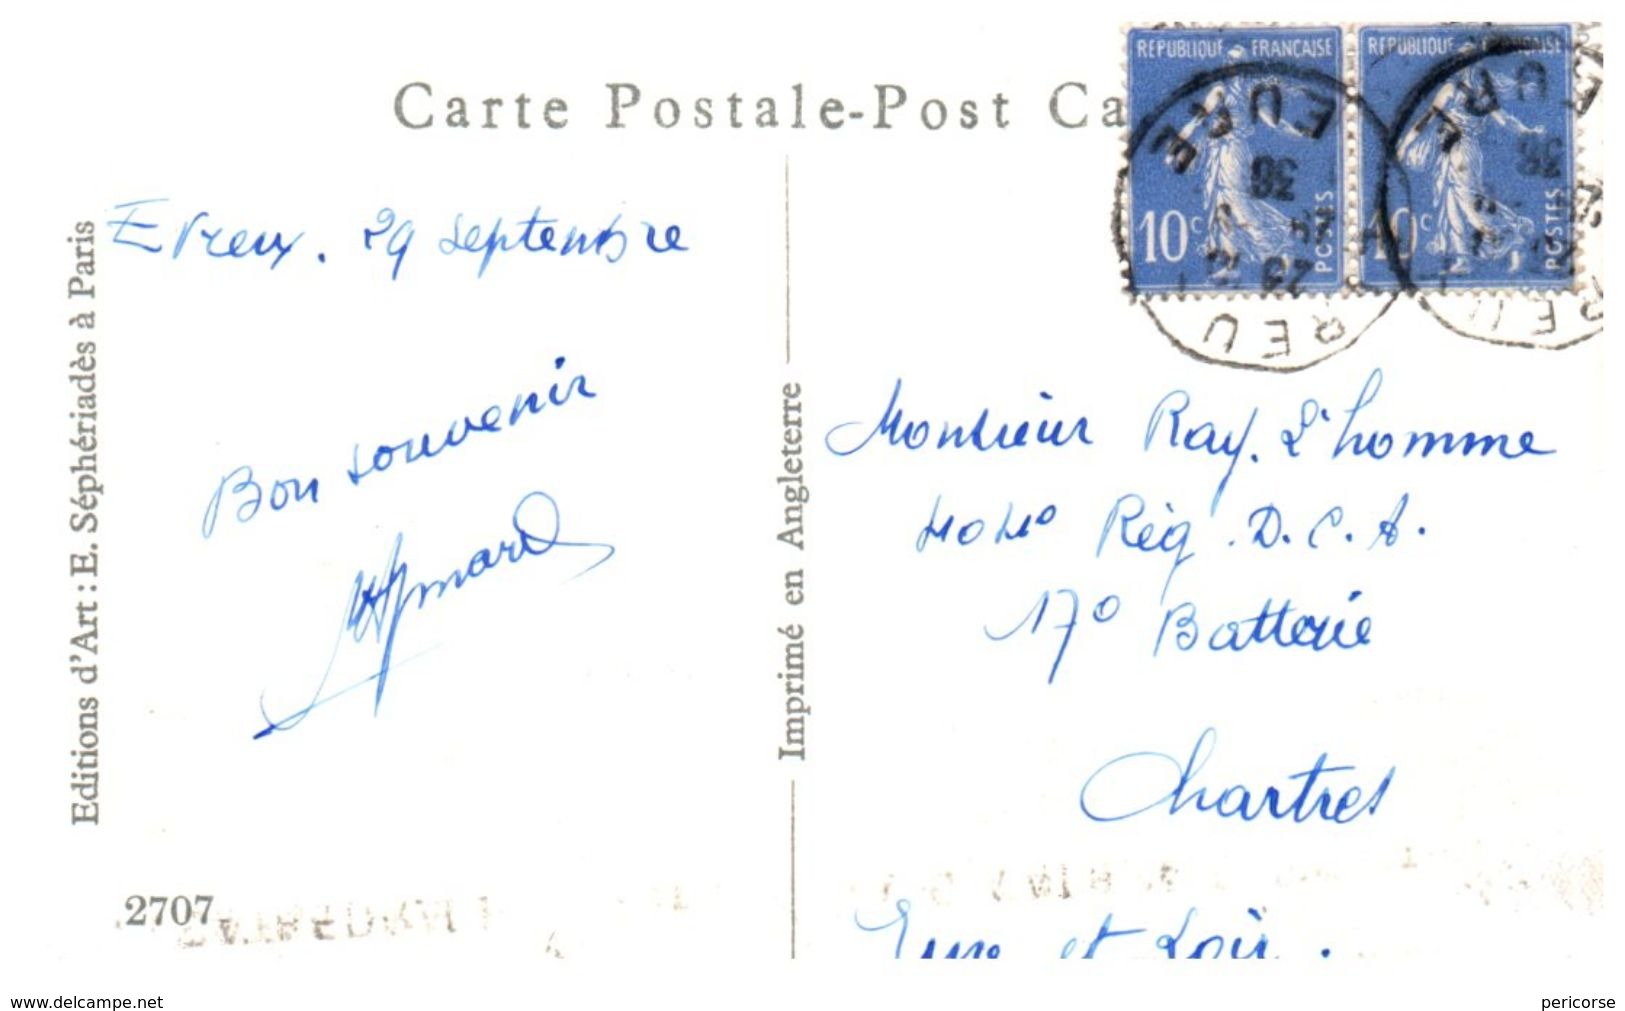 Carte Postale-Post Ca
REPUBLIQUE FRANÇAISE
10c
POSTES
REPUBLIQUE FRANÇAISE
10c
POSTES
EURE
36
REU
EURE
36
REU
Evreux. 29 septembre
Bon souvenir
Aymard
Editions d'Art : E. Séphériadès à Paris
2707
Imprimé en Angleterre
Monsieur Ray. L'homme
404e Rég. D.C.A.
17e Batterie
Chartres
Eure et Loir.
www.delcampe.net
pericorse